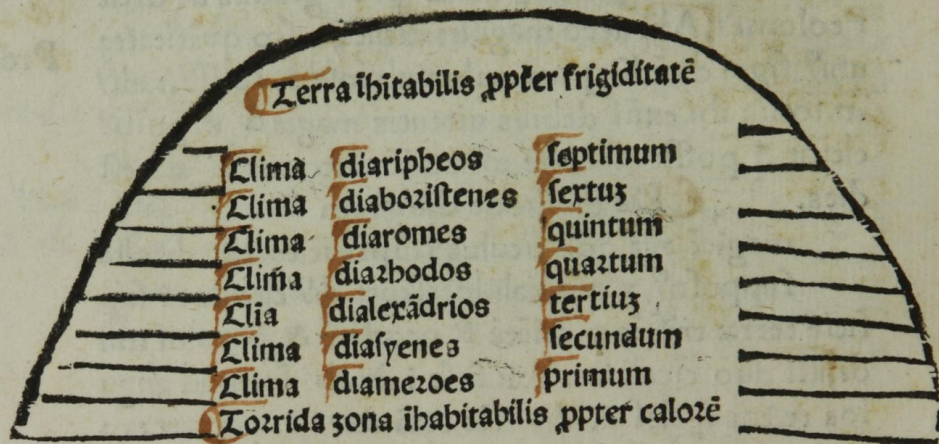 Terra ihītabilis ꝓpter frigiditatē
Clima diaripheos septimum
Clima diaboristenes sextuꝫ
Clima diaromes quintum
Clim̃a diarhodos quartum
Clia dialexādrios tertiuꝫ
Clima diasyenes secundum
Clima diameroes primum
Torrida zona īhabitabilis ꝓpter calorē